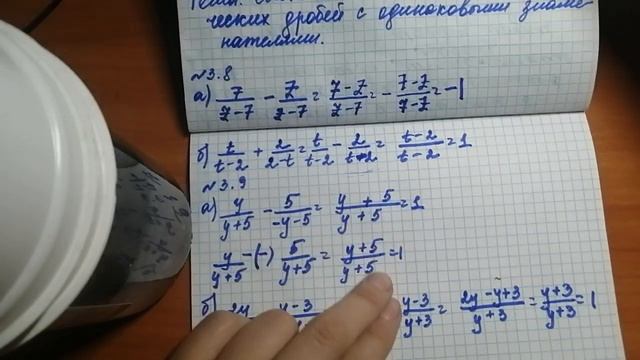 ческих дробей с одинаковыми знаме-
нателями.
№3.8
а) 7/(z-7) - z/(z-7) = (7-z)/(z-7) = - (7-z)/(7-z) = -1
б) t/(t-2) + 2/(2-t) = t/(t-2) - 2/(t-2) = (t-2)/(t-2) = 1
№3.9
а) y/(y+5) - 5/(-y-5) = (y+5)/(y+5) = 1
y/(y+5) -(-) 5/(y+5) = (y+5)/(y+5) = 1
б) (y-3)/(y+3) = (2y-y+3)/(y+3) = (y+3)/(y+3) = 1